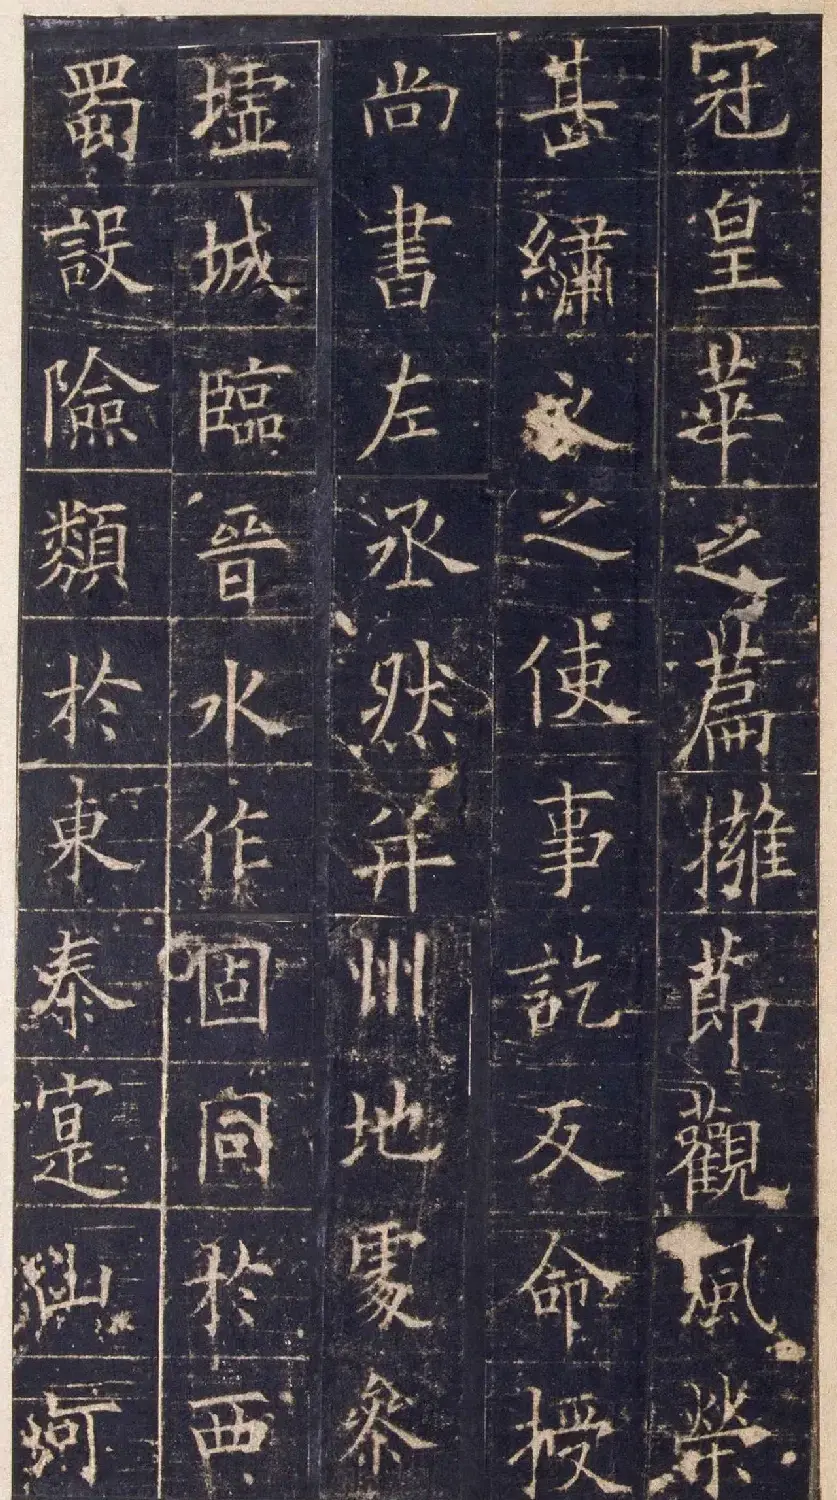 冠皇華之篇擁莭觀風榮
甚繡衣之使事訖反命授
尚書左丞然并州地處參
墟城臨晉水作固同於西
蜀設險類於東秦寔山河